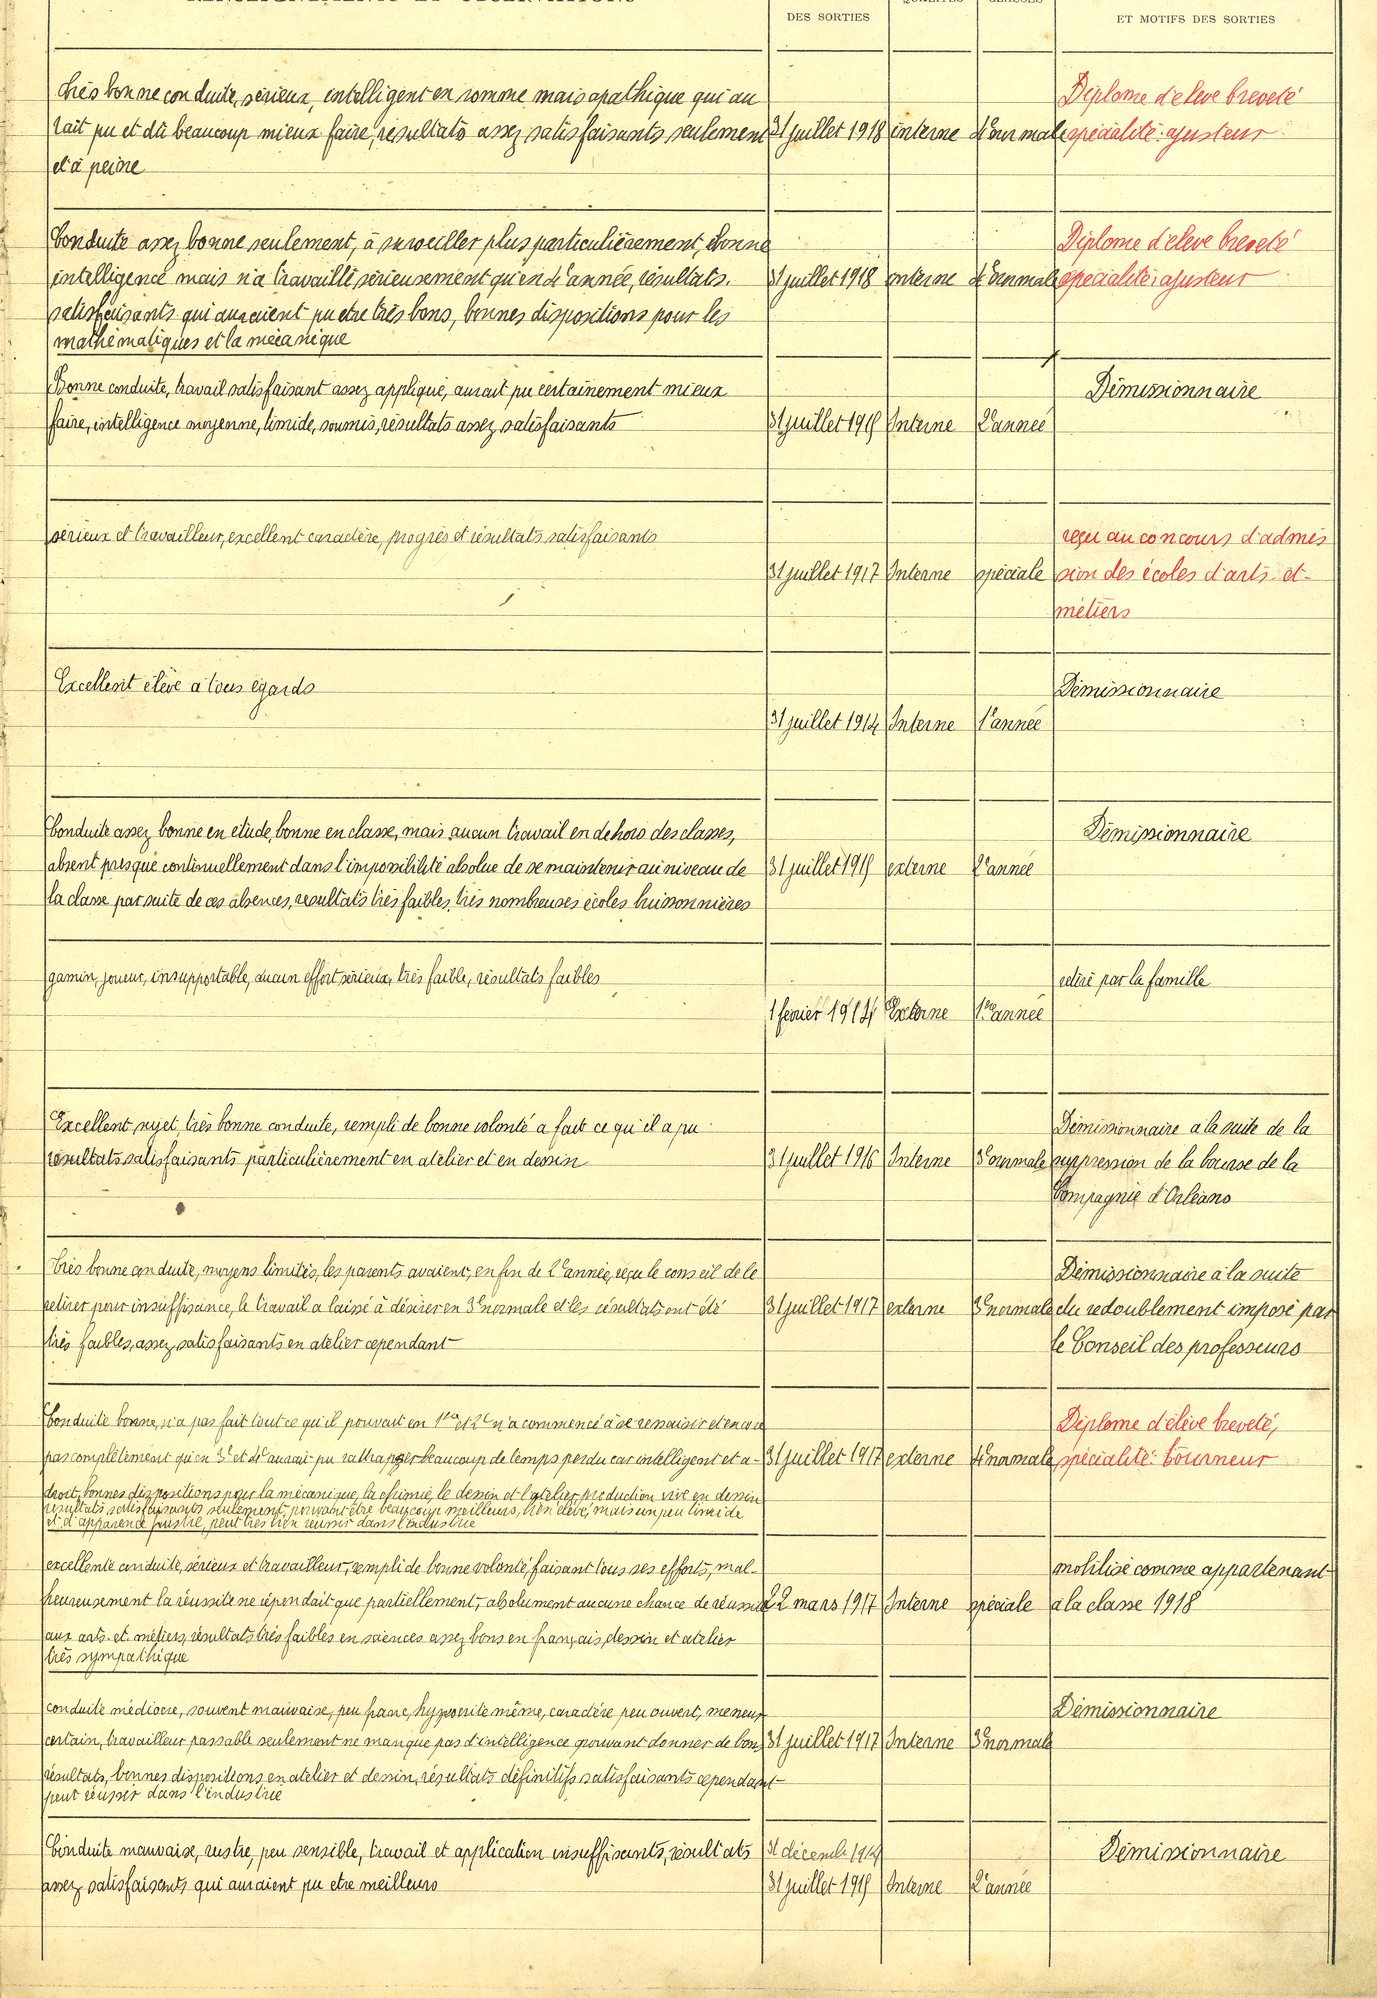 RENSEIGNEMENTS ET OBSERVATIONS
DES SORTIES
QUALITÉS
CLASSES
ET MOTIFS DES SORTIES
très bonne conduite, sérieux, intelligent en somme mais apathique qui au
rait pu et dû beaucoup mieux faire, résultats assez satisfaisants seulement
et à peine
31 juillet 1918
interne
4e normale
Diplome d'élève breveté
spécialité: ajusteur
Conduite assez bonne seulement, à surveiller plus particulièrement, bonne
intelligence mais n'a travaillé sérieusement qu'en 4e année, résultats
satisfaisants qui auraient pu etre très bons, bonnes dispositions pour les
mathématiques et la mécanique
31 juillet 1918
interne
4e normale
Diplome d'élève breveté
spécialité: ajusteur
Bonne conduite, travail satisfaisant assez appliqué, aurait pu certainement mieux
faire, intelligence moyenne, timide, soumis, résultats assez satisfaisants
31 juillet 1915
Interne
2e année
Démissionnaire
sérieux et travailleur, excellent caractère, progrès et résultats satisfaisants
31 juillet 1917
Interne
spéciale
reçu au concours d'admis
sion des écoles d'arts et
métiers
Excellent élève à tous égards
31 juillet 1914
Interne
1e année
Démissionnaire
Conduite assez bonne en etude, bonne en classe, mais aucun travail en dehors des classes,
absent presque continuellement dans l'impossibilité absolue de se maintenir au niveau de
la classe par suite de ces absences, resultats très faibles, très nombreuses écoles buissonnières
31 juillet 1915
externe
2e année
Démissionnaire
gamin, joueur, insupportable, aucun effort sérieux, très faible, résultats faibles
1 février 1914
Externe
1ère année
retiré par la famille
Excellent sujet, très bonne conduite, rempli de bonne volonté a fait ce qu'il a pu
résultats satisfaisants particulièrement en atelier et en dessin
31 juillet 1916
Interne
3e normale
Démissionnaire à la suite de la
suppression de la bourse de la
Compagnie d'Orléans
très bonne conduite, moyens limités, les parents avaient, en fin de 2e année, reçu le conseil de le
retirer pour insuffisance, le travail a laissé à désirer en 3e normale et les résultats ont été
très faibles, assez satisfaisants en atelier cependant
31 juillet 1917
externe
3e normale
Démissionnaire à la suite
du redoublement imposé par
le Conseil des professeurs
Conduite bonne, n'a pas fait tout ce qu'il pouvait en 1ère et 2e n'a commencé à se ressaisir et encore
pas complètement qu'en 3e et 4e aurait pu rattraper beaucoup de temps perdu car intelligent et a-
droit, bonnes dispositions pour la mécanique, la chimie, le dessin et l'atelier, production vive en dessin
résultats satisfaisants seulement, pouvant être beaucoup meilleurs, bien élevé, mais un peu timide
et d'apparence fruste, peut très bien réussir dans l'industrie
31 juillet 1917
externe
4e normale
Diplome d'élève breveté,
spécialité: tourneur
excellente conduite, sérieux et travailleur, rempli de bonne volonté, faisant tous ses efforts, mal-
heureusement la réussite ne répondait que partiellement, absolument aucune chance de réussite
aux arts et métiers, résultats très faibles en sciences assez bons en français, dessin et atelier
très sympathique
22 mars 1917
Interne
spéciale
mobilisé comme appartenant
à la classe 1918
conduite médiocre, souvent mauvaise, peu franc, hypocrite même, caractère peu ouvert, meneur
certain, travailleur passable seulement ne manque pas d'intelligence pouvant donner de bons
résultats, bonnes dispositions en atelier et dessin, résultats définitifs satisfaisants cependant
peut réussir dans l'industrie
31 juillet 1917
Interne
3e normale
Démissionnaire
Conduite mauvaise, rustre, peu sensible, travail et application insuffisants, résultats
assez satisfaisants qui auraient pu etre meilleurs
31 décembre 1914
31 juillet 1915
Interne
2e année
Démissionnaire